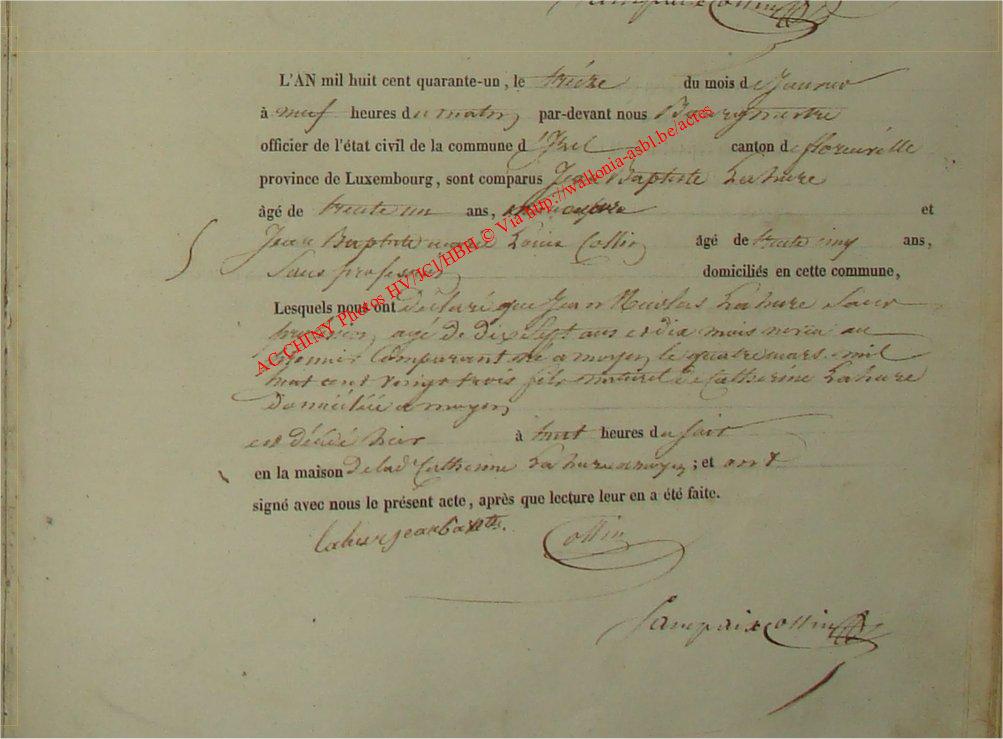 Sampaix Collin
L'AN mil huit cent quarante-un, le treize du mois de Janvier
à neuf heures du matin, par-devant nous Bourgmestre
officier de l'état civil de la commune d'Izel canton de florenville
province de Luxembourg, sont comparus Jean Baptiste Lahure
âgé de trente un ans, et
Jean Baptiste Louis Collin âgé de trente cinq ans,
Sans profession domiciliés en cette commune,
Lesquels nous ont déclaré que Jean Nicolas Lahure Sans
profession, agé de dix Sept ans et dix mois au
premier Comparant né a moyen le quatre mars mil
huit cent vingt trois fils naturel de Catherine Lahure
Domiciliée a moyen,
est décédé hier à huit heures du soir
en la maison de lad Catherine Lahure a moyen ; et ont
signé avec nous le présent acte, après que lecture leur en a été faite.
lahure jean baptte. Collin
Sampaix Collin
AC CHINY Photos HV/JCl/HBH © Via http://wallonia-asbl.be/actes